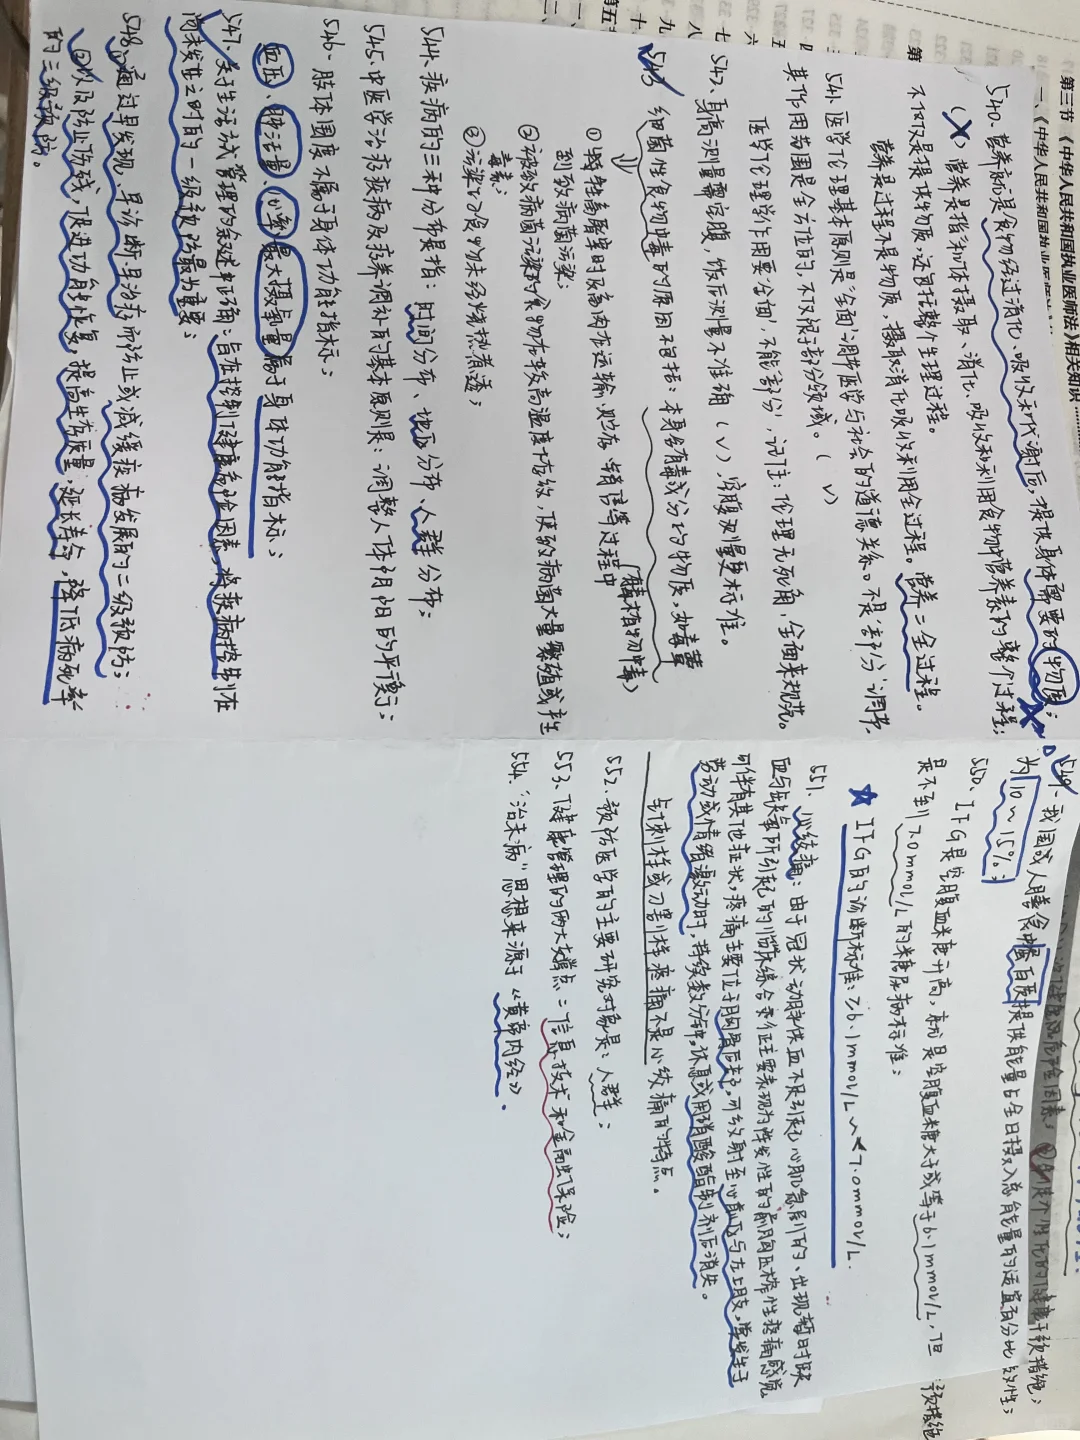 540、营养就是食物经过消化、吸收和代谢后，提供身体需要的物质；
（×）营养是指利体摄取、消化、吸收和利用食物中营养素的整个过程；
不仅仅是提供物质，还包括整个生理过程。
营养是过程不是物质，摄取消化吸收利用全过程。营养=全过程。
541、医学伦理基本原则是"全面"调节医学与社会的道德关系。不是"部分"调节，
其作用范围是全方位的，不仅限于部分领域。（√）
医学伦理学作用要"全面"，不能"部分"，记住：伦理无死角，全面来规范。
542、身高测量需空腹，饭后测量不准确（√），空腹测量更标准。
543、细菌性食物中毒的原因不包括：本身含有毒成分的物质，如毒蕈
（属植物中毒）
①牲畜屠宰时及禽肉在运输、贮存、销售等过程中
到致病菌污染；
②被致病菌污染的食物在较高温度下存放，使致病菌大量繁殖或产生
毒素；
③污染的食物未经烧熟煮透；
544、疾病的三种分布是指：时间分布、地区分布、人群分布；
545、中医学治疗疾病及疗养调补的基本原则是：调整人体阴阳的平衡；
546、肢体围度不属于身体功能指标；
血压、肺活量、心率、最大摄氧量属于身体功能指标；
547、关于生活方式管理的叙述正确：旨在控制健康危险因素，将疾病控制在
尚未发生之时的一级预防最为重要；
548、①通过早发现、早诊断、早治疗而防止或减缓疾病发展的二级预防；
②以及防止伤残，促进功能恢复，提高生存质量，延长寿命，降低病死率
的三级预防。
549、我国成人膳食中蛋白质提供能量占全日摄入总能量的适宜百分比
为10~15%；
550、IFG是空腹血糖升高，就是空腹血糖大于或等于6.1mmol/L，但
是不到7.0mmol/L的糖尿病标准；
☆ IFG的诊断标准：≥6.1mmol/L~<7.0mmol/L.
551、心绞痛：由于冠状动脉供血不足引起心肌急剧的、出现暂时缺
血与缺氧所引起的临床综合征主要表现为阵发性的前胸压榨性疼痛感觉
可伴有其他症状，疼痛主要位于胸骨后部，可放射至心前区与左上肢，常发生于
劳动或情绪激动时，持续数分钟，休息或用硝酸酯制剂后消失。
针刺样或刀割样疼痛不是心绞痛的特点。
552、预防医学的主要研究对象是：人群；
553、健康管理的两大支撑点=信息技术和金融保险；
554、"治未病"思想来源于《黄帝内经》.
第三节《中华人民共和国执业医师法》相关知识
一、《中华人民共和国执业医师法》